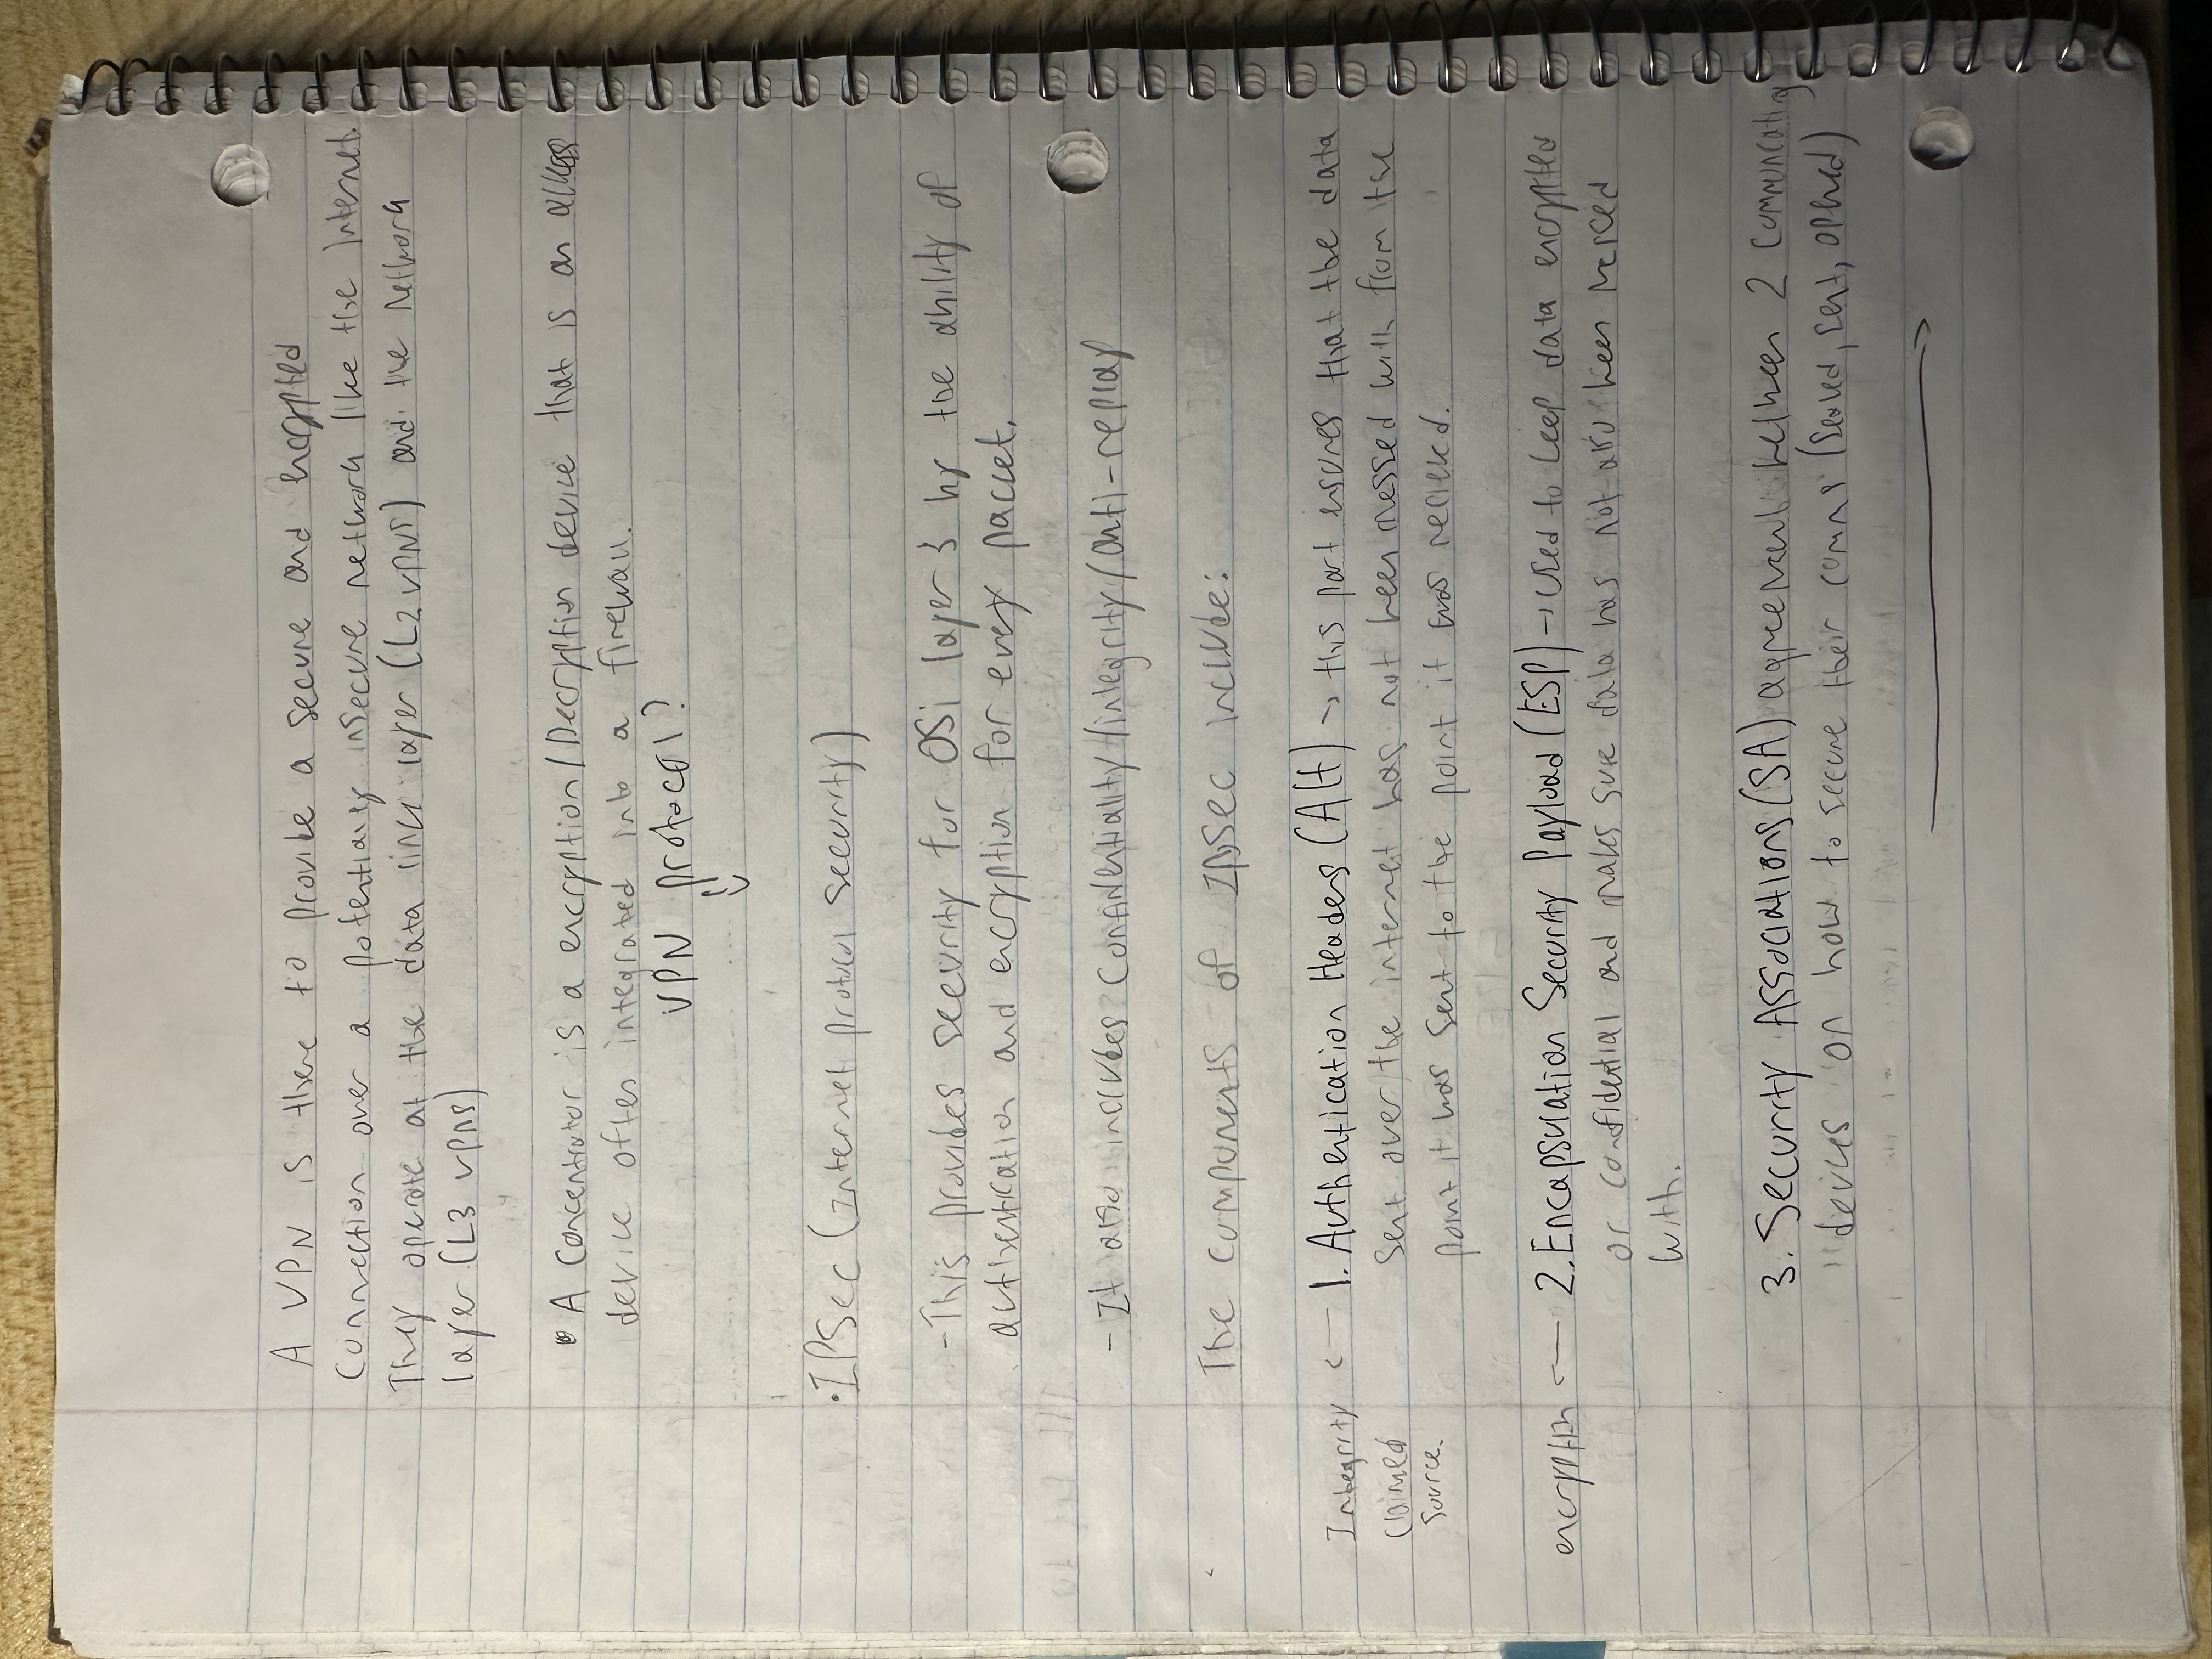 A VPN is there to provide a secure and encrypted
Connection over a potentially insecure network like the Internet.
They operate at the data link layer (L2 VPNS) and the Network
layer (L3 VPNS)
• A Concentrator is a encryption/Decryption device that is an access
device often integrated into a firewall.
VPN protocol?
↓
• IPSec (Internet protocol security)
- This provides security for OSi layer 3 by the ability of
authentication and encryption for every packet.
- It also includes Confidentiality/integrity/anti-replay
The components of IPSec include:
Integrity ← 1. Authentication Headers (AH) → this part ensures that the data
Claimed sent over the internet has not been messed with from the
Source. point it was sent to the point it was
encryption ← 2. Encapsulation Security Payload (ESP) → Used to keep data encrypted
or confidential and makes sure data has not also been messed
with.
3. Security Associations (SA) agreement between 2 communicating
devices on how to secure their comms (sealed, sent, opened)
→